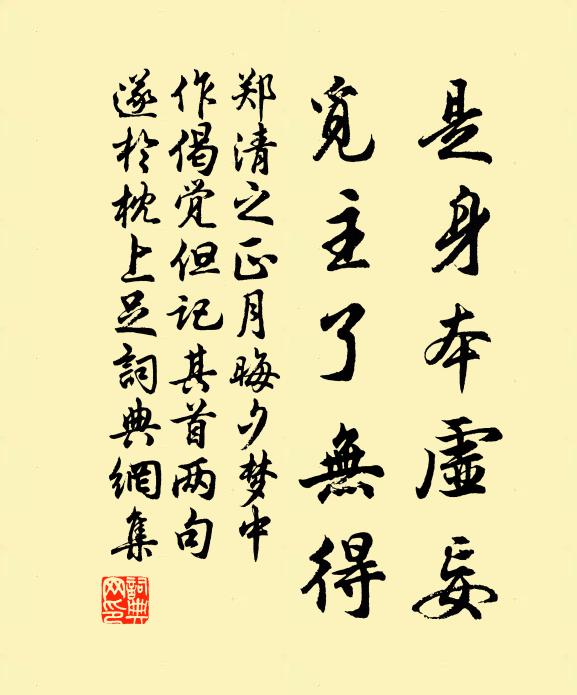 是身本虛妄
覓主了無得
郑清之正月晦夕梦中
作偈觉但记其首两句
遂於枕上足詞典網集
詞典网印